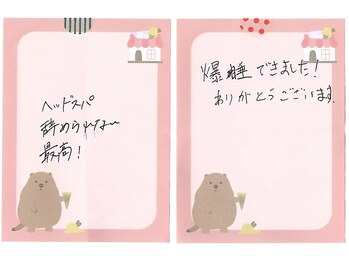 ヘッドスパ
辞められない
最高!
爆睡できました!
ありがとうございます